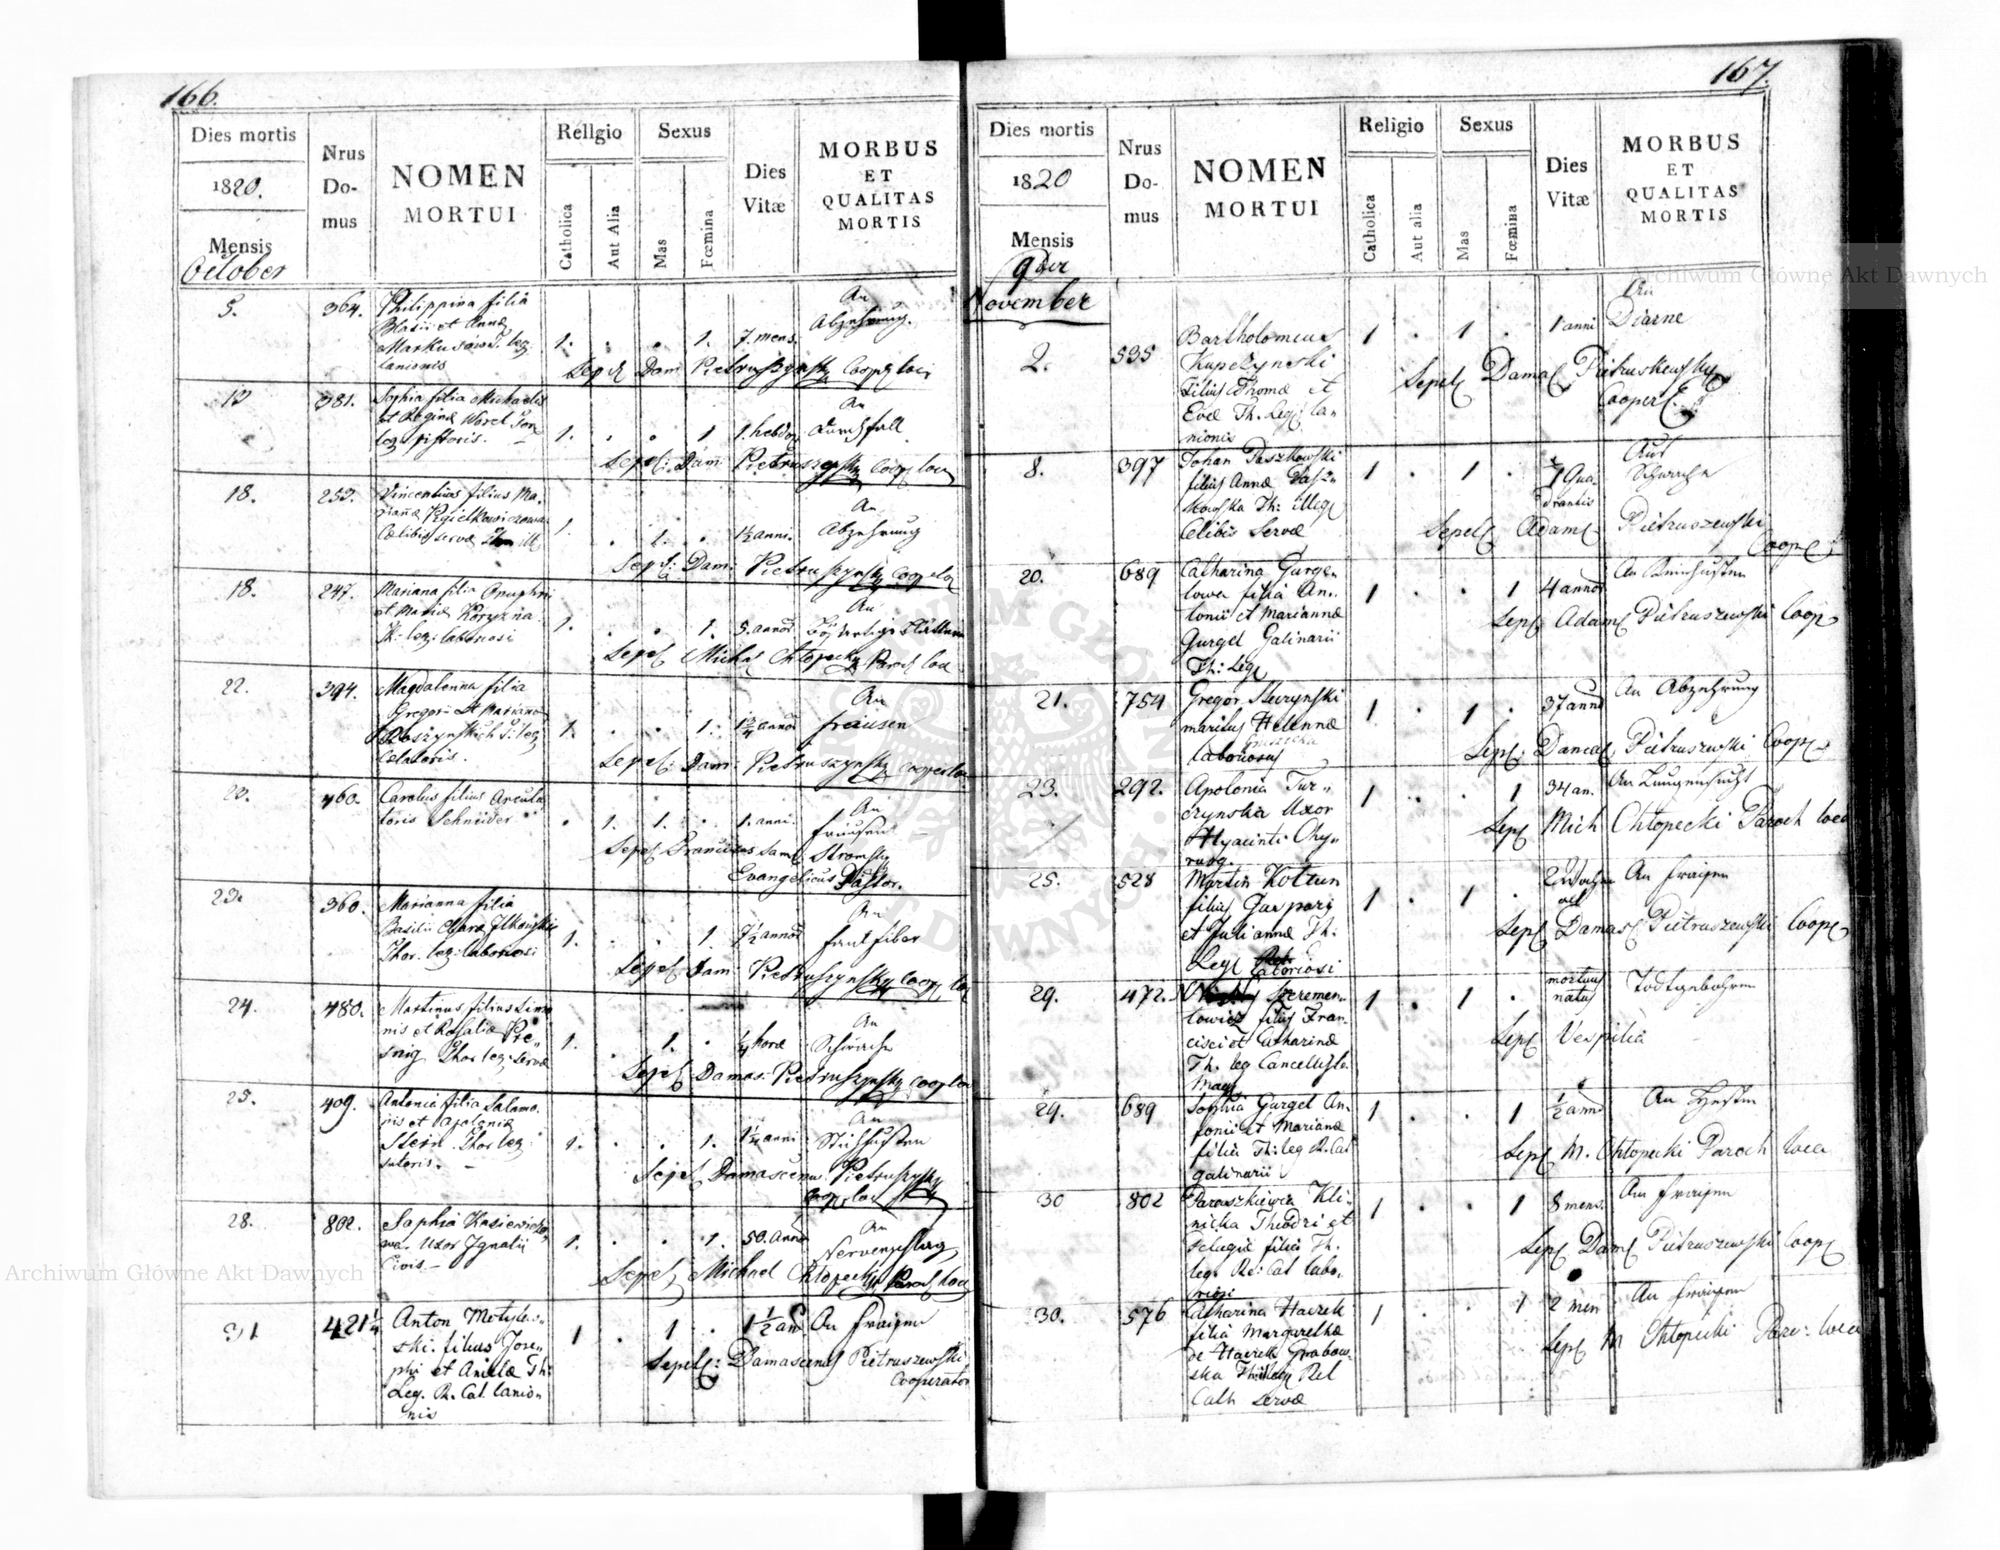 166.
Dies mortis
1820.
Mensis
October
Nrus
Do-
mus
NOMEN
MORTUI
Religio
Catholica
Aut Alia
Sexus
Mas
Fœmina
Dies
Vitæ
MORBUS
ET
QUALITAS
MORTIS
5. 364. Philippina filia
Blasii et Annæ
1. . . 1. 7. mens.
An
Abzehrung.
lanionis
Sepel Dam Pietruszynsky Coop loci
13 381. Sophia filia Michaelis
et Reginæ
pistoris.
1. . . 1 1. hebdo
An
Durchfall
Sepel: Dam Pietruszynsky Coop loci
18. 253. Vincentius filius Ma-
rianæ
Cælibis servæ
1. . 1. . 1½ anni.
An
Abzehrung
Sepel: Dam: Pietruszynsky Coop loci
18. 247. Mariana filia Onuphrii
et Mariæ
leg: laboriosi
1. . . 1. 5. annor
An
Sepel Michal Chlopecky Paroch loci
22. 394. Magdalenna filia
Gregorii et Marianæ
1. . . 1. 1¾ annor
An
fraisen
Sepel: Dam: Pietruszynsky Cooper loci
23. 460. Carolus filius
Schneider
. 1. 1. . 1. anni.
An
fraisen
Sepel Franciscus Sam Stromsky
Evangelicus Pastor.
23. 360. Marianna filia
Basilii
Thor. leg: laboriosi
1. . . 1 7½ annor
An
faul fiber
Sepel Dam: Pietruszynsky Coop loci
24. 480. Martinus filius Simo
nis et Rosaliæ
Thor leg: servæ
1. . 1. . ¼ horæ
An
Schwäche
Sepel Damas: Pietruszynsky Coop loci
25. 409. Antonia filia Salamo
nis et Apoloniæ
Stein Thor leg:
sutoris.
1. . . 1. 1¼ anni
An
Stickhusten
Sepel Damascenus Pietruszynsky
Coop loci
28. 802. Sophia Kasiewiczo
wa Uxor Ignatii
Civis
1. . . 1. 50. Anno
An
Nervenschlag
Sepel Michael Chlopecky Paroch loci
31 421¼ Anton Motylew-
ski. filius Jose-
phi et Anielæ Th:
Leg. R. Cat. lanio-
nis
1 . 1 . 1½ an
An Fraisen
Sepel: Damascenus Pietruszewski
Cooperator
167.
Dies mortis
1820
Mensis
9ber
November
Nrus
Do-
mus
NOMEN
MORTUI
Religio
Catholica
Aut alia
Sexus
Mas
Fœmina
Dies
Vitæ
MORBUS
ET
QUALITAS
MORTIS
2. 535 Bartholomeus
Kupczynski
filius Thomæ et
Evæ Th. Leg: la-
nionis
1 . 1 . 1 anni
An
Diarne
Sepel Damas Pietruskewsky
Cooper
8. 397 Johan Daszkowski
filius Annæ Dasz-
kowska Th: illeg
Celibis Servæ
1 . 1 . 1 Qua-
drantis
Aus
Schwäche
Sepel Adam Pietruszewski
Coop
20. 689 Catharina Gurge-
lowa filia An-
tonii et Mariannæ
Gurgel Galinarii
Th: Leg
1 . . 1 4 annor
An Keinhusten
Sepel Adam Pietruszewski Coop
21. 754 Gregor Sleczynski
maritus Helennæ
laboriosus
1 . 1 . 37 anno
An Abzehrung
Sepel: Damas Pietruszewski Coop
23. 292. Apolonia Tur-
czynska Uxor
Hyacinti Chy-
rurg.
1 . . 1 34 an.
An Lungensucht
Sepel Mich Chlopecki Paroch loci
25. 528 Martin Koltun
filius Gaspari
et Juliannæ Th:
Leg laboriosi
1 . 1 . 2 Wochen
alt
An Fraisen
Sepel Damas Pietruszewski Coop
29. 472. Szeremen-
towicz filius Fran-
cisci et Catharinæ
Th. leg
Mag
1 . 1 . mortuus
natus
Todtgebohren
Sepel Vespilia
29. 689 Sophia Gurgel An-
tonii et Marianæ
filia Th: leg R. Cat
galinarii
1 . . 1 ½ anno
An Husten
Sepel M. Chlopecki Paroch loci
30 802 Paraszkiewia Kli-
nicka Theodri et
Pelagiæ filia Th.
leg. Re: Cat labo-
riosi
1 . . 1 8 mens.
An Fraisen
Sepel Dam Pietruszewski Coop
30. 576 Catharina Hawrek
filia Margarethæ
de Hawrek Grabow-
ska Th: illeg Rel
Cath Servæ
1 . . 1 2 men
An Fraisen
Sepel M Chlopecki Par: loci
Archiwum Główne Akt Dawnych
Archiwum Główne Akt Dawnych
ARCHIWUM GŁÓWNE AKT DAWNYCH